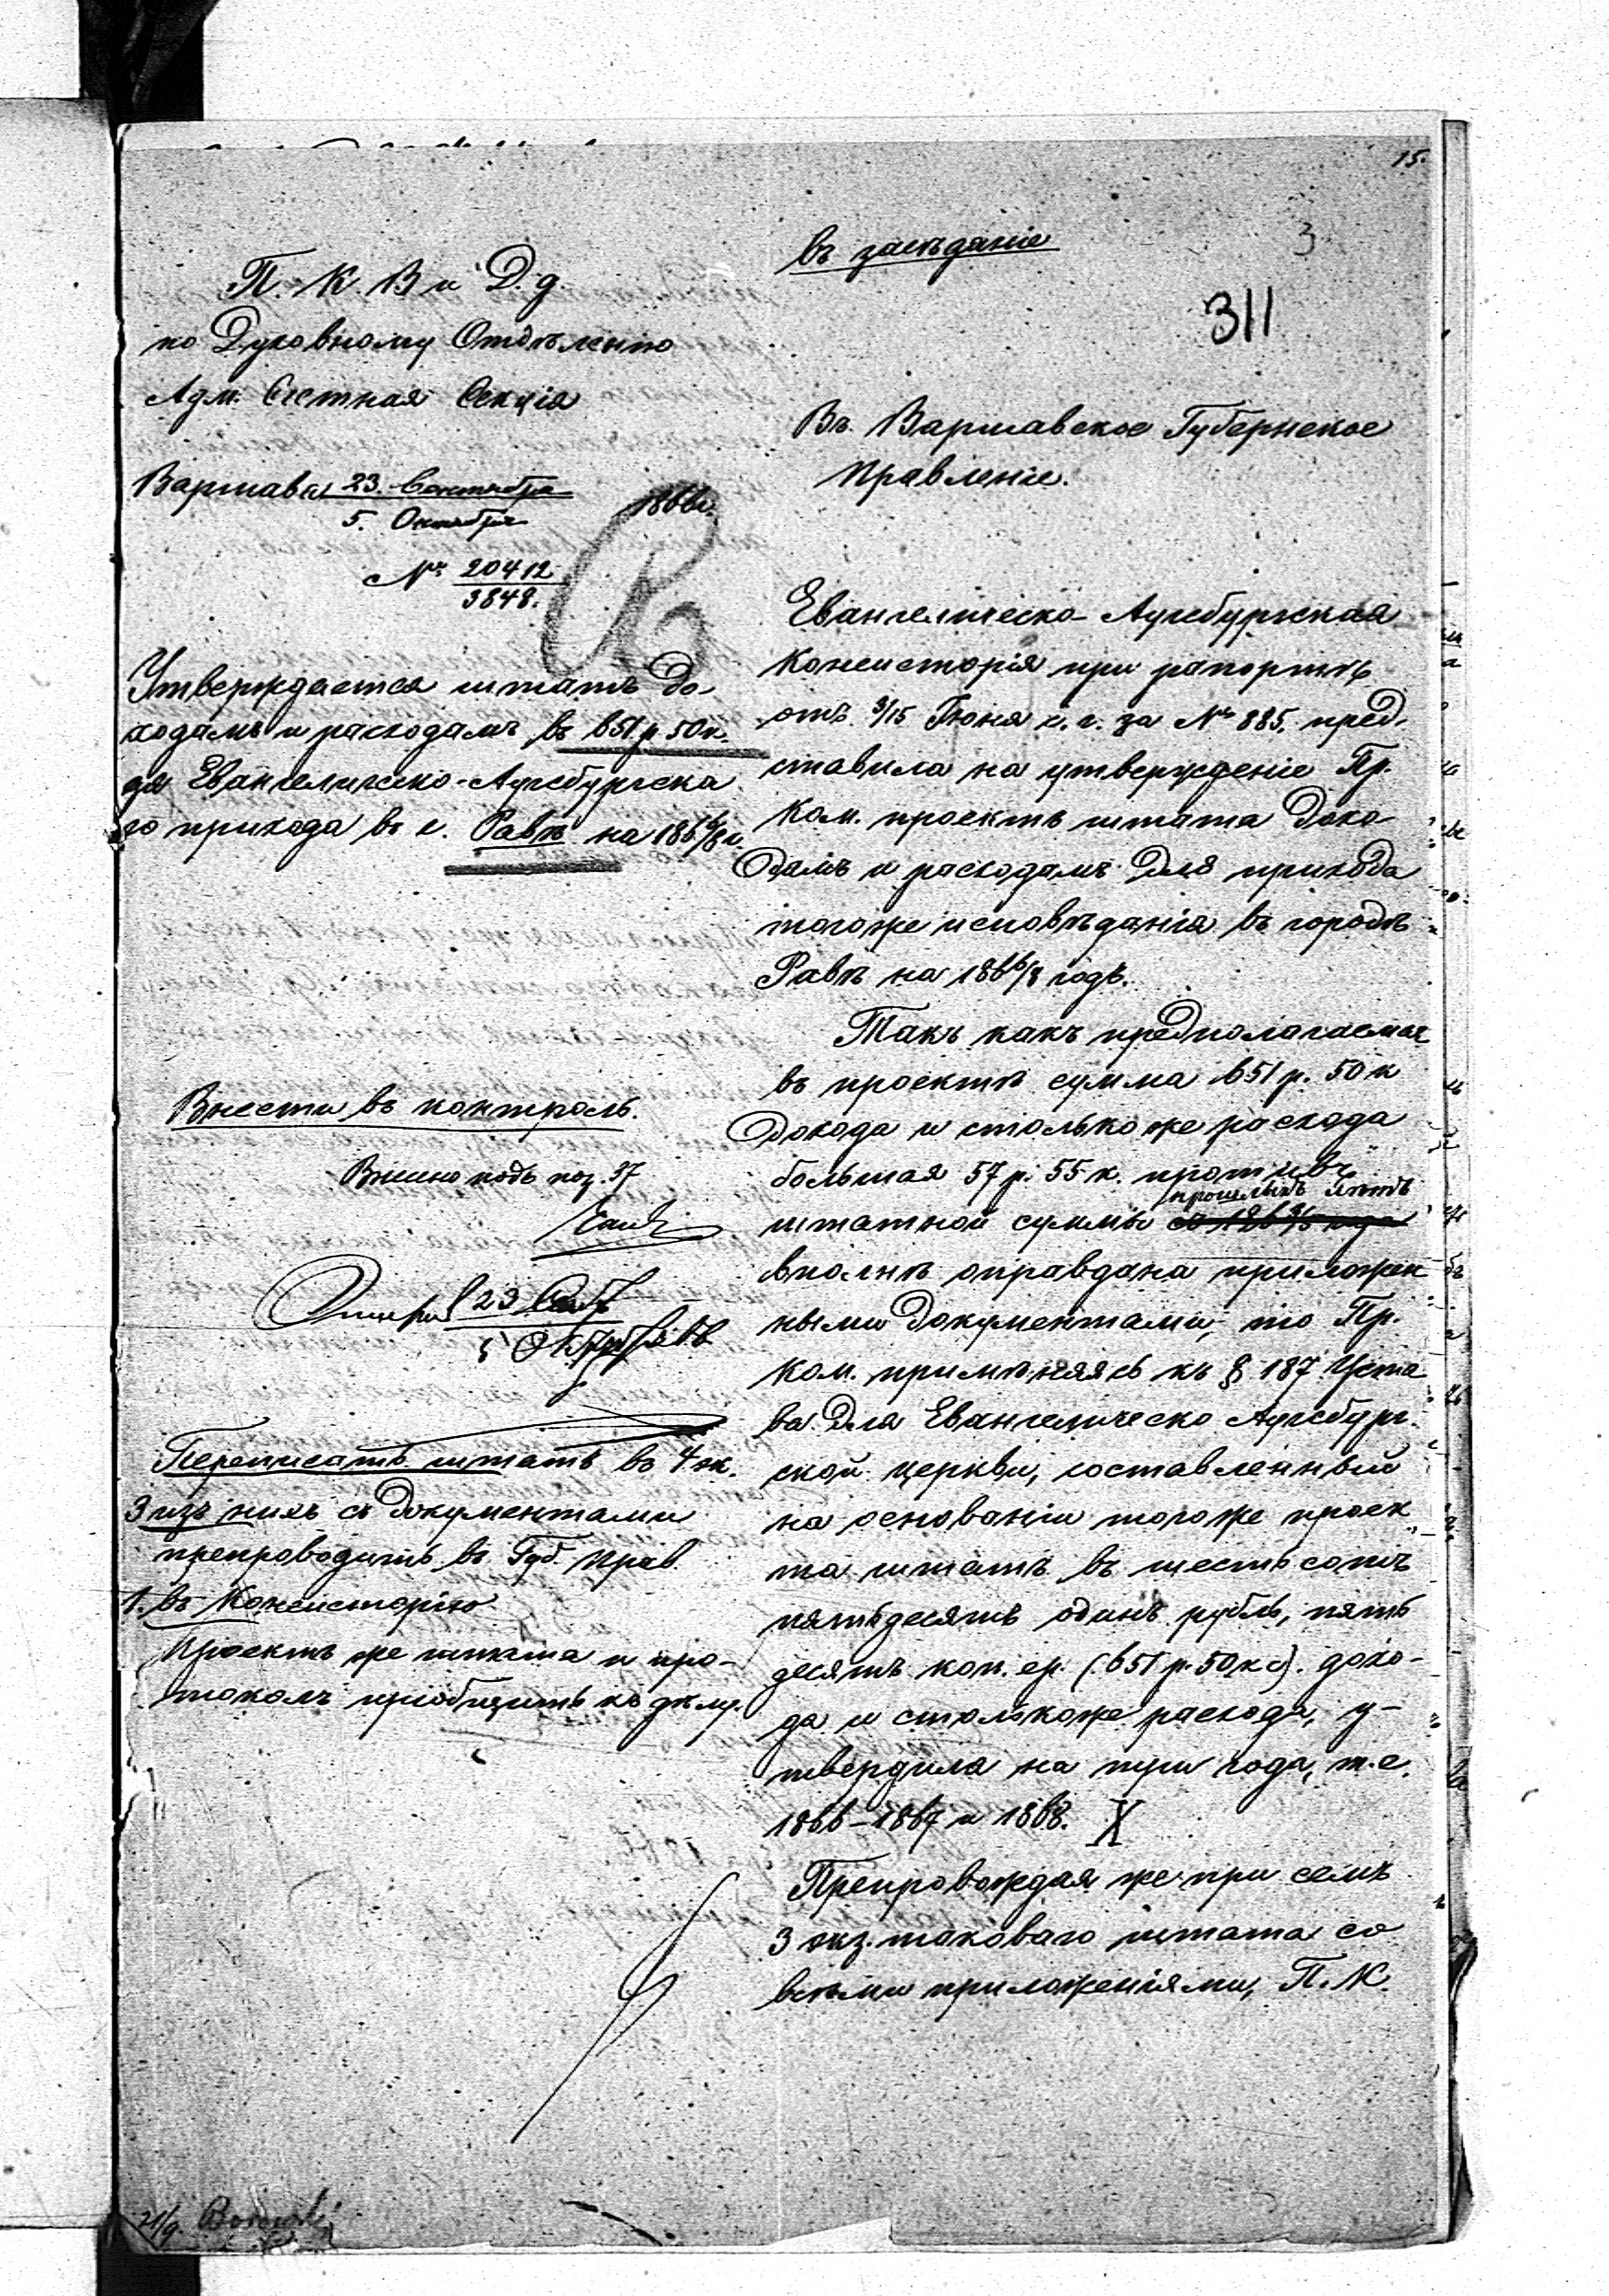 15.
3
въ засѣданіе
311
П. К. В и Д. д.
по Духовному Отдѣленію
Адм. Счетная Секція
Варшава 23. Сентября
5. Октября
1866г.
№ 20412
3848.
Утверждается штатъ до-
ходамъ и расходамъ въ 651 р 50 к.
для Евангелическо-Аугсбургска
го прихода въ г. Равѣ на 1866/8 г.
Внести въ контроль.
Внесено подъ поз. 37
23
5
Переписать штатъ въ 4 эк.
3 изъ нихъ съ документами
препроводить въ Губ. Прав.
1. въ Консисторію
Проектъ же штата и про-
токолъ пріобщить къ дѣлу.
21/9.
Въ Варшавское Губернское
Правленіе.
Евангелическо-Аугсбургская
Консисторія при рапортѣ
отъ 3/15 Іюня с. г. за № 885. пред-
ставила на утвержденіе Пр.
Ком. проектъ штата дохо
дамъ и расходамъ для прихода
тогоже исповѣданія въ городѣ
Равѣ на 1866/8 годъ.
Такъ какъ предполагаемая
въ проектѣ сумма 651 р. 50 к
дохода и столько же расхода
большая 57 р. 55 к. противъ
прошлыхъ лѣтъ
штатной суммы
вполнѣ оправдана приложен
ными документами, то Пр.
Ком. примѣняясь къ § 187 Уста
ва для Евангелическо Аугсбург-
ской церкви, составленный
на основаніи тогоже проек
та штатъ въ шестьсотъ
пятьдесятъ одинъ рубль, пять
десятъ коп. ср. (651 р. 50 к с). дохо-
да и столькоже расхода, у-
твердила на три года, т. е.
1866-1867 и 1868. X
Препровождая же при семъ
3 экз. таковаго штата со
всѣми приложеніями, П. К.